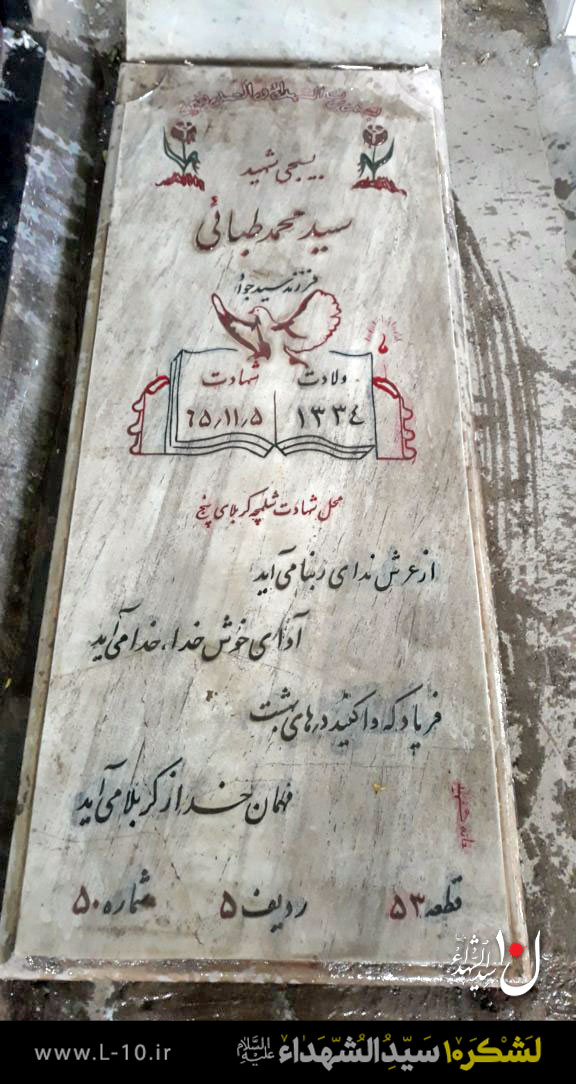 بسیجی شهید
سید محمد طبائی
فرزند سید جواد
ولادت شهادت
۱۳۳٤ ٦۵/۱۱/۵
محل شهادت شلمچه کربلای پنج
از عرش ندای ربنا می آید
آوای خوش خدا، خدا می آید
فریاد که وا کنید درهای بهشت
مهمان خدا از کربلا می آید
قطعه ۵۳ ردیف ۵ شماره ۵۰
سیدالشهداء
لشکر۱۰ سَیِّدِالشُّهَداءِ عَلَیْهِ السَّلام
www.L-10.ir